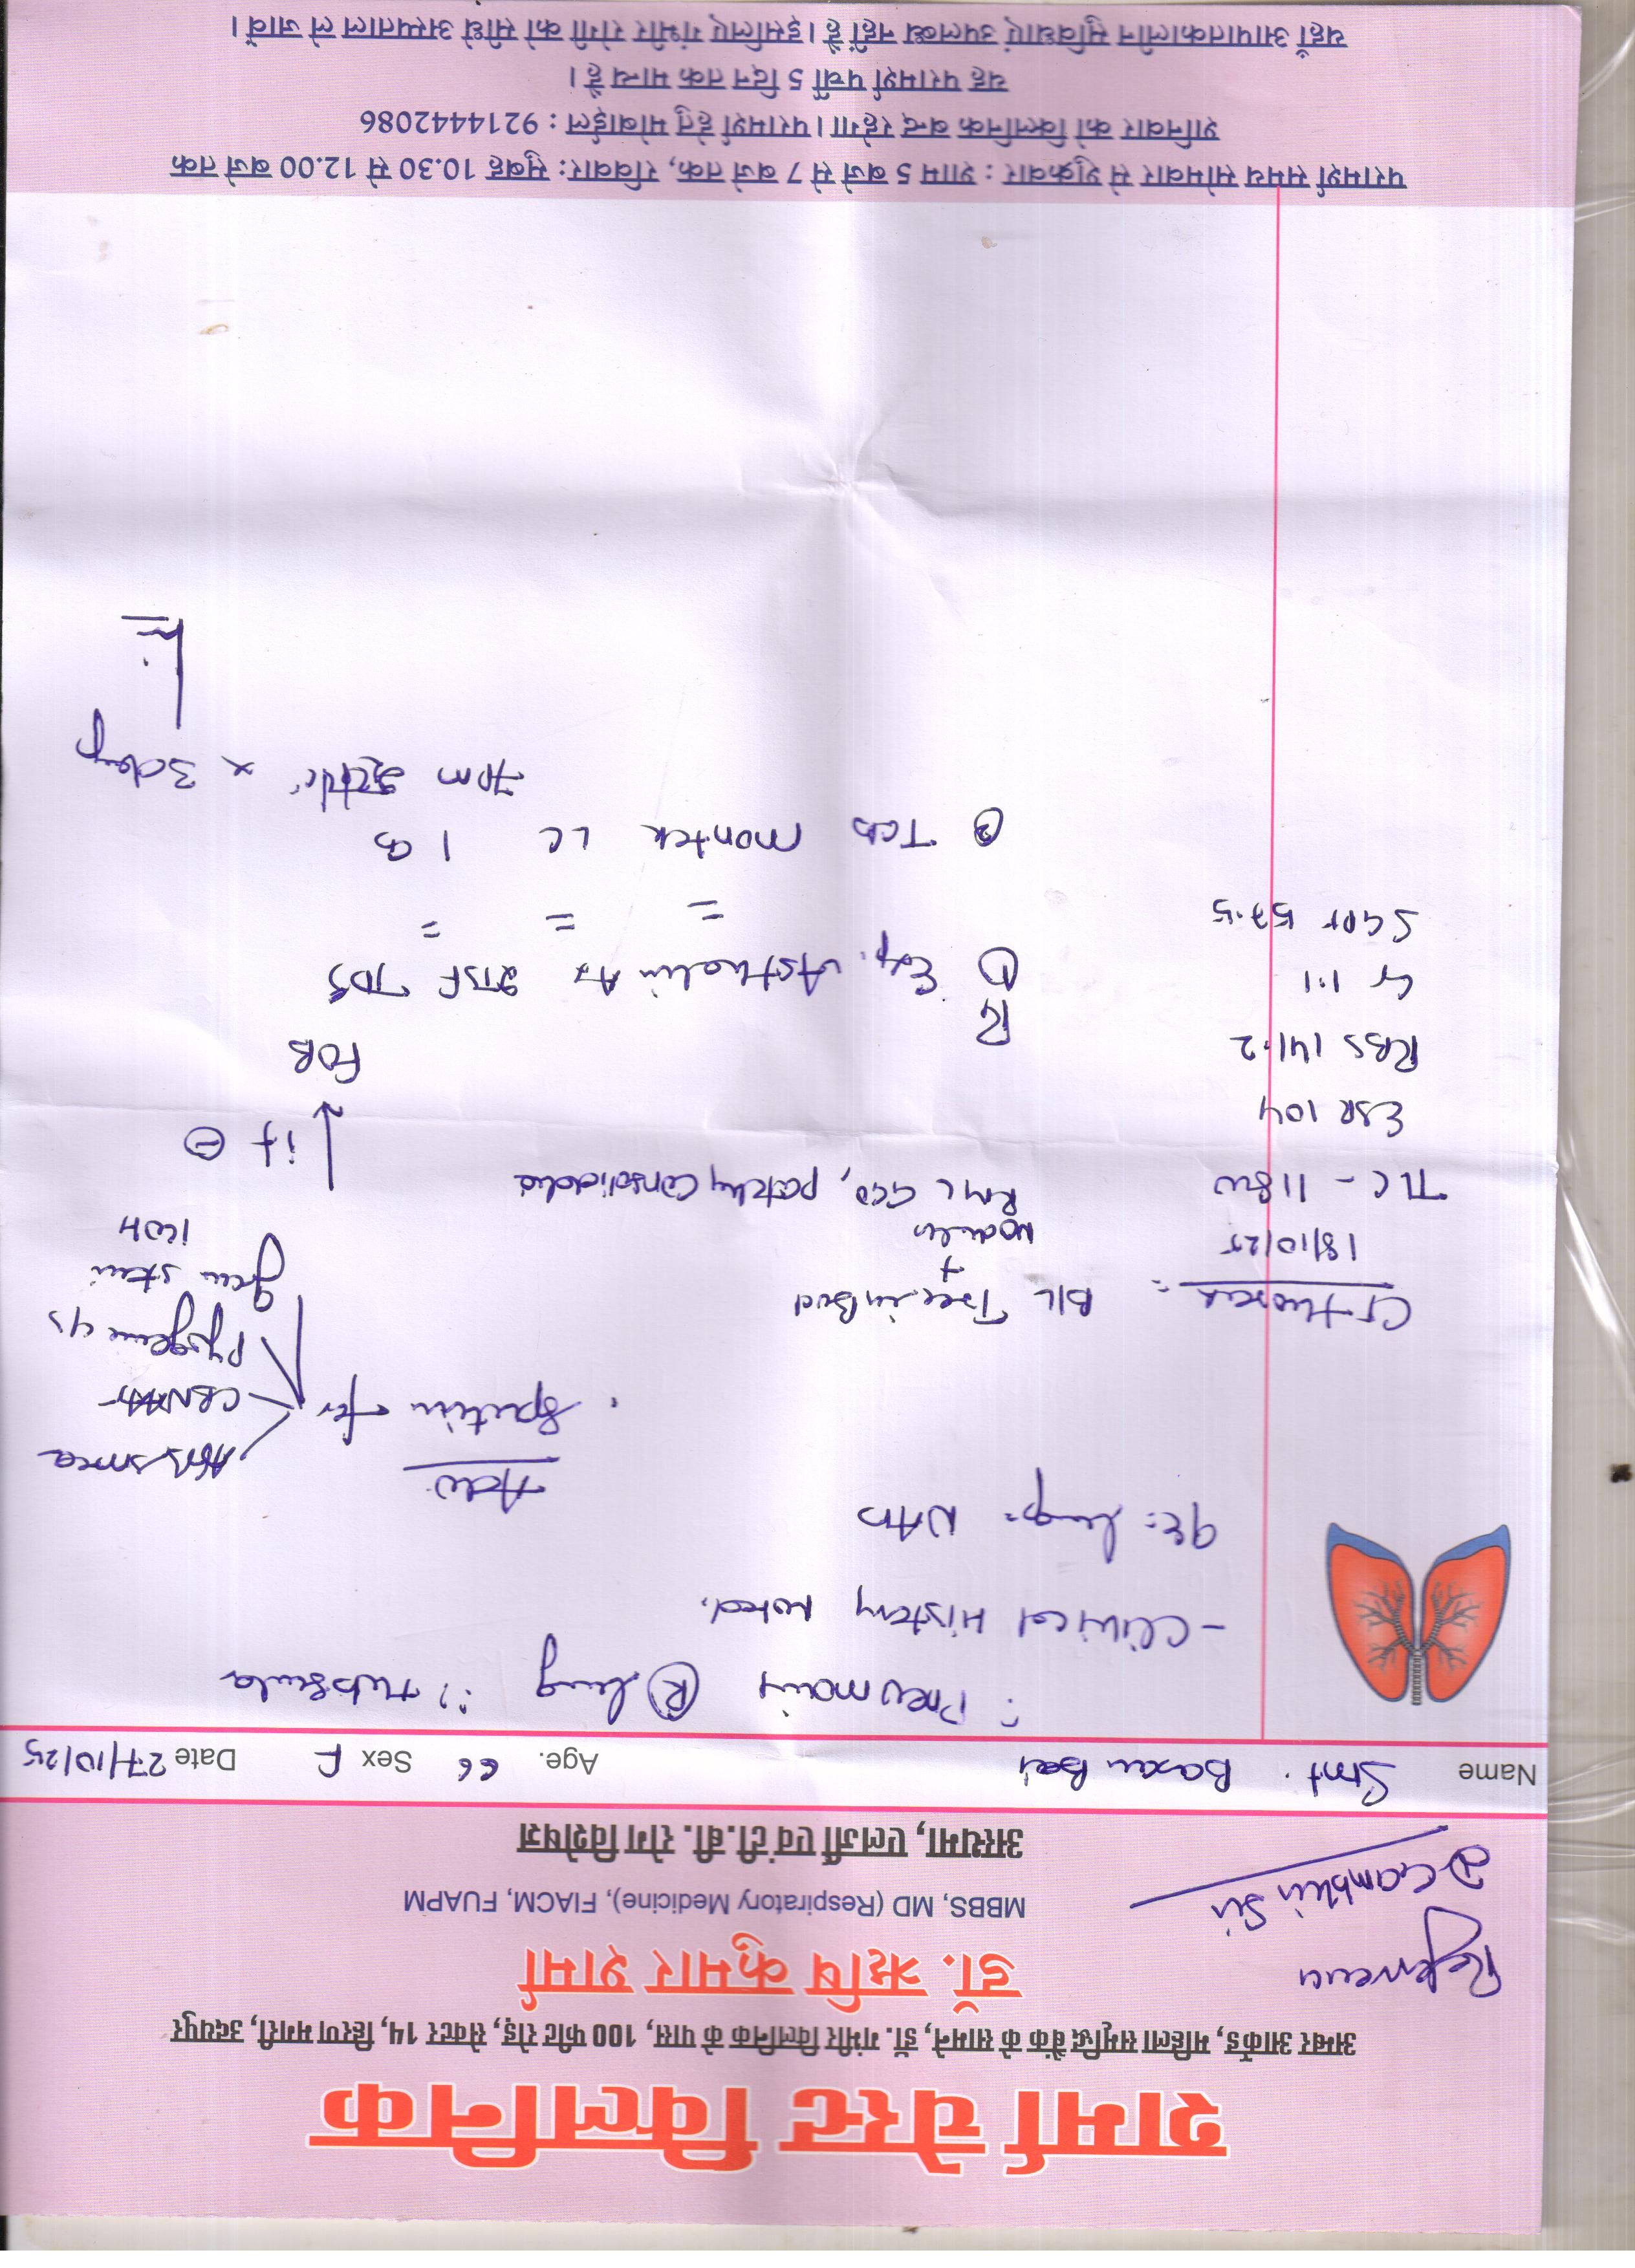 शर्मा चेस्ट क्लिनिक
अम्बर आर्केड, महिला समृद्धि बैंक के सामने, डॉ. गंभीर क्लिनिक के पास, 100 फीट रोड़, सेक्टर 14, हिरण मगरी, उदयपुर
डॉ. ऋषि कुमार शर्मा
MBBS, MD (Respiratory Medicine), FIACM, FUAPM
अस्थमा, एलर्जी एवं टी.बी. रोग विशेषज्ञ
Name Smt. Bai Age. 66 Sex F Date 27/10/25
Pneumonia (R) lung
- Clinical History Noted.
Lungs = NAD
Adv
Sputum for
AFB smear
CBNAAT
Pyogenic c/s
gram stain
KOH
if ⊖
↓
FOB
CT thorax = B/L Tree in Bud
+ nodules
18/10/25
RML GGO, patchy consolidation
TLC - 11800
ESR 104
RBS 141.2
Cr 1.1
SGPT 57.5
R
① Exp. Asthalin AX 2TSF TDS
= = =
② Tab Montek LC 1
7pm x 3 days
परामर्श समय सोमवार से शुक्रवार : शाम 5 बजे से 7 बजे तक, रविवार : सुबह 10.30 से 12.00 बजे तक
शनिवार को क्लिनिक बन्द रहेगा। परामर्श हेतु मोबाईल : 9214442086
यह परामर्श पर्ची 5 दिन तक मान्य है।
यहाँ आपातकालीन सुविधाएं उपलब्ध नहीं है। इसलिए गंभीर रोगी को सीधे अस्पताल ले जावें।